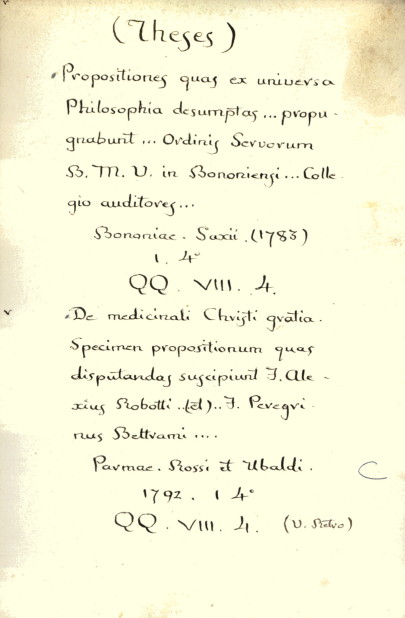 (Theses)
Propositiones quas ex universa
Philosophia desumptas ... propu-
gnabunt ... Ordinis Servorum
B. M. V. in Bononiensi ... Colle-
gio auditores ...
Bononiae. Saxii. (1783)
1. 4°
QQ. VIII. 4.
De medicinali Christi gratia.
Specimen propositionum quas
disputandas suscipiunt F. Ale-
xius Robotti .. (et) .. F. Peregri-
nus Beltrami ....
Parmae. Rossi et Ubaldi.
1792. 1 4°
QQ. VIII. 4. (V. Retro)